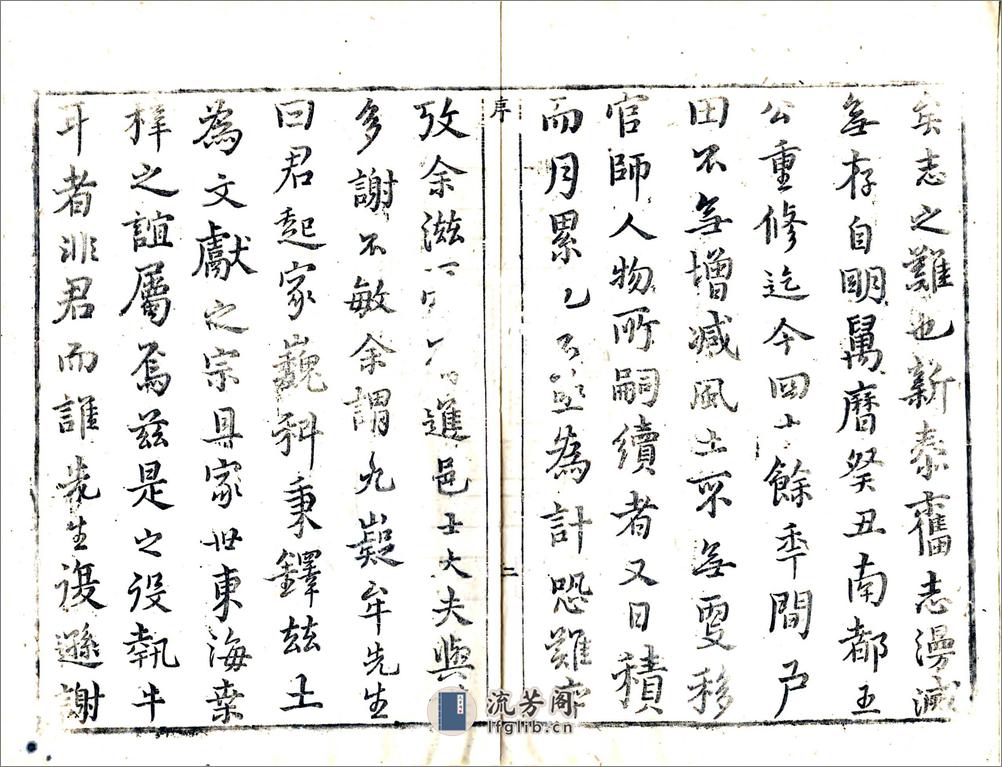 矣志之難也新泰舊志漫滅
無存自明萬曆癸丑南都王
公重修迄今四十餘年間戶
田不無增減風土不無更移
官師人物所嗣續者又日積
而月累已 為計恐難
序
二
攷余滋 進邑士大夫與
多謝不敏余謂九嶷牟先生
曰君起家巍科秉鐸茲土
為文獻之宗且家世東海桑
梓之誼屬焉茲是之役執牛
耳者非君而誰先生復遜謝
流芳阁
lfglib.cn